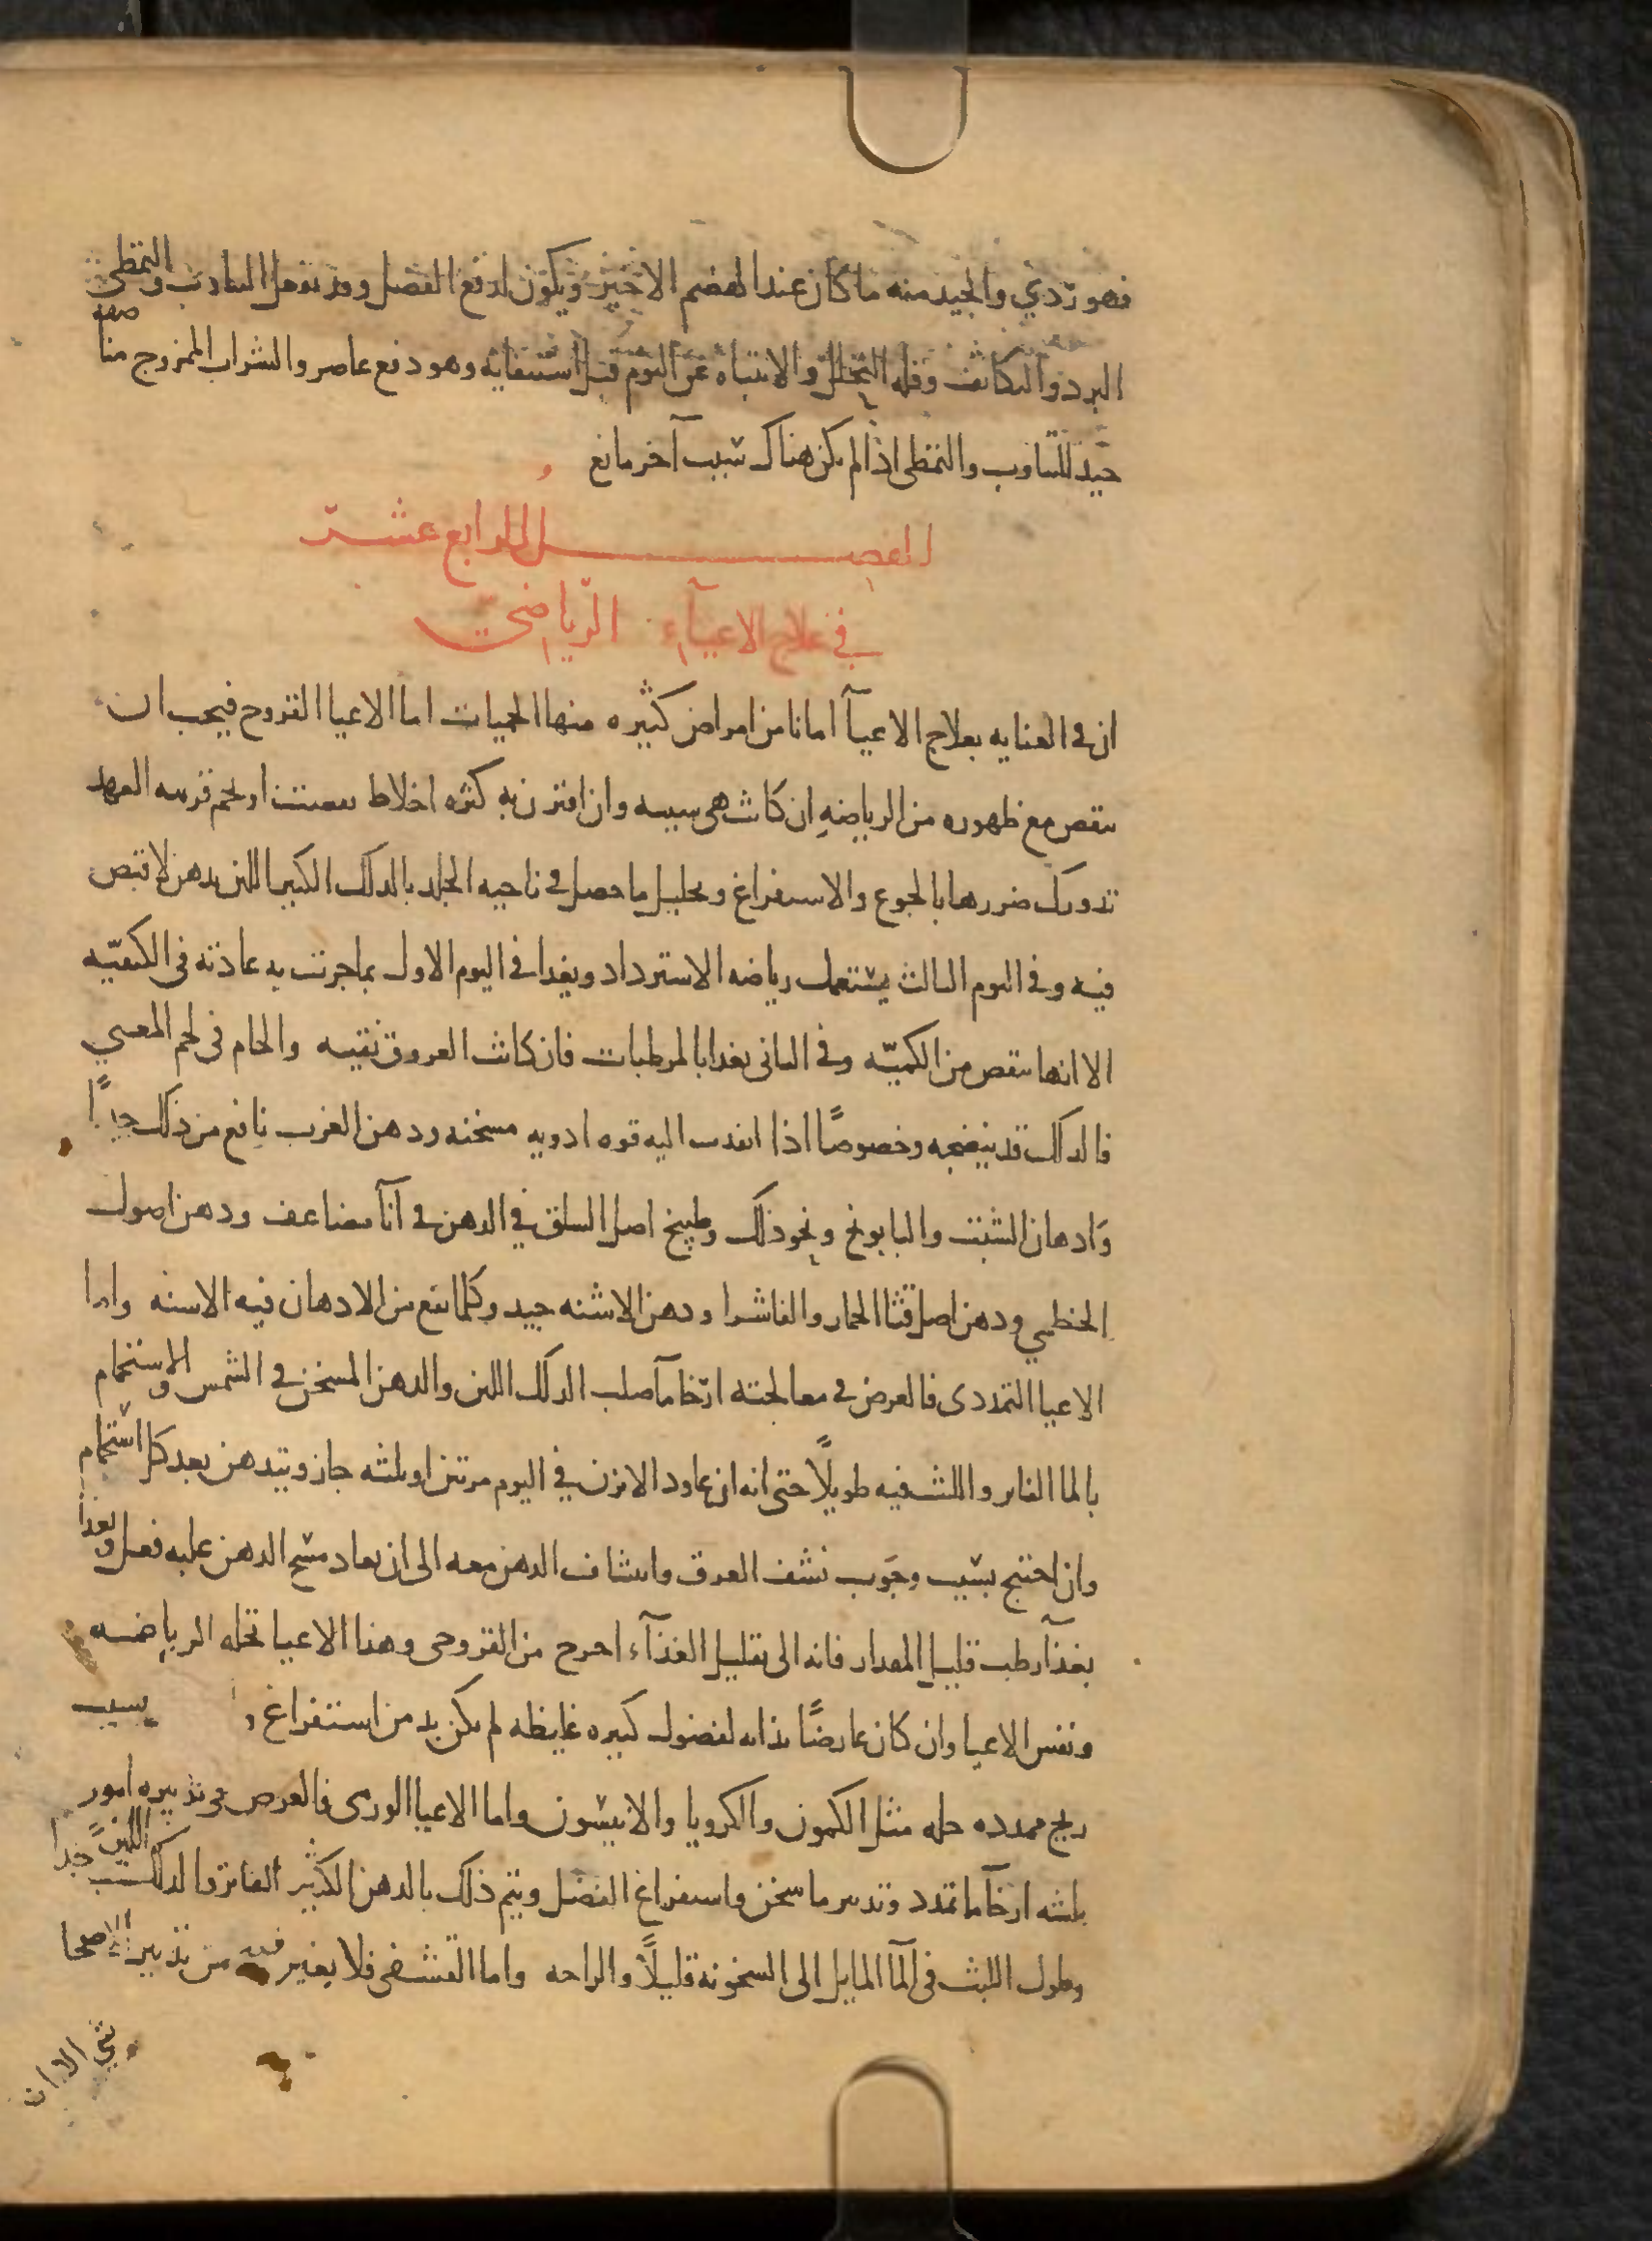 فهو ردي والجيد منه ما كان عند الهضم الاخير ويكون لدفع الفضل وقد يفعل التثاوب والتمطي
البرد والتكاثف وقله التحلل والانتباه عن النوم قبل استيفايه وهو دفع عاصر والشراب الممزوج مناصفه
جيد للتثاوب والتمطي اذا لم يكن هناك سبب آخر مانع
الفصل الرابع عشر
في علاج الاعيآء الرياضي
ان في العنايه بعلاج الاعيآ امانا من امراض كثيره منها الحميات اما الاعيا القروح فيجب ان
ينقص مع ظهوره من الرياضه ان كانت هي سببه وان اقترن به كثره اخلاط نقصت او تخم قريبه العهد
تدورك ضررها بالجوع والاستفراغ وتحليل ما حصل في ناحيه الجلد بالدلك الكثير اللين بدهن لا قبض
فيه وفي اليوم الثالث يستعمل رياضه الاسترداد ويغدا في اليوم الاول بما جرت به عادته في الكيفيّه
الا انها ينقص من الكميّه وفي الثاني يغدا بالمرطبات فان كانت العروق نقيه والخام في لحم المعي
فالدلك قد ينضجه وخصوصًا اذا انفدت اليه قوه ادويه مسخنه ودهن الغرب نافع من ذلك جدًا
وادهان الشبت والبابونج ونحو ذلك وطبيخ اصل السلق في الدهن في آنآ مضاعف ودهن اصول
الخطمي ودهن اصل قثا الحمار والفاشرا ودهن الاشنه جيد وكلما نقع من الادهان فيه الاسنه واما
الاعيا التمددي فالغرض في معالجته ارخا مآ صلب الدلك اللين والدهن المسخن في الشمس والاستحمام
بالما الفاتر واللبث فيه طويلًا حتى انه ان عاود الابزن في اليوم مرتين او ثلثه جاز ويتدهن بعد كل استحمام
وان احتيج بسبب وجوب نشف العرق وانتشاف الدهن معه الى ان يعاد مسح الدهن عليه فعل ويغذا
بغذآ رطب قليل المقدار فانه الى تقليل الغذآء احوج من القروحي وهذا الاعيا تحله الرياضه
ونفس الاعيا وان كان عارضًا بذاته لفضول كثيره غليظه لم يكن بد من استفراغ و بسبب
ريح ممدده حله مثل الكمون والكرويا والانيسون واما الاعيا الورمي فالغرض في تدبيره امور
ثلثه ارخآ ما تمدد وتبريد ما سخن واستفراغ الفضل ويتم ذلك بالدهن الكثير الفاتر والدلك اللين جدًا
وطول اللبث في المآ المايل الى السخونه قليلًا والراحه واما القشفي فلا يغير فيه من تدبير الاصحا
شي الا ان